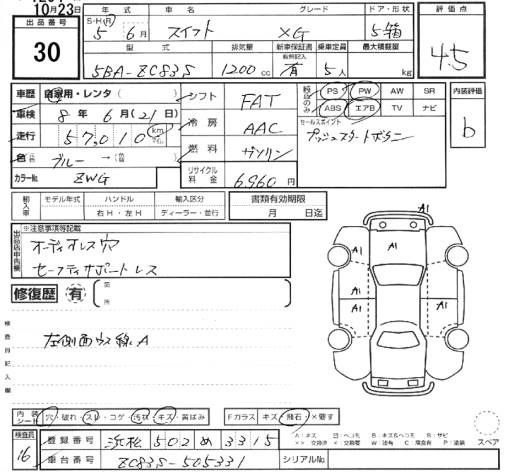 10月23日
出品番号
30
年式 車名 グレード ドア・形状
S・H・R 5年 6月 スイフト XG 5箱
型式 排気量 新車保証書 乗車定員 最大積載量
5BA-ZC83S 1200cc 有 5人 kg
評価点
4.5
車歴 自家用・レンタ( )
車検 8年 6月(21日)
走行 57,010 km
色 ブルー →
カラーNo. ZWG
シフト FAT
冷房 AAC
燃料 ガソリン
リサイクル料金 6,960円
PS PW AW SR
ABS エアB TV ナビ
セールスポイント
プッシュスタートボタン
内装評価
b
輸入車 モデル年式 ハンドル 輸入区分
右H・左H ディーラー・並行
書類有効期限
月 日迄
※注意事項等記載
オーディオレス
セーフティサポートレス
修復歴 有
検査員記入欄
左側面ウス線A
A1
A1
A1
A1
A1
A1
内装シート 穴・破れ スレ・コゲ 汚状・キズ・黄ばみ Fガラス キズ・飛石・×要す
検査員
16
登録番号 浜松 502 め 3315
車台番号 ZC83S-505331 シリアルNo.
スペア